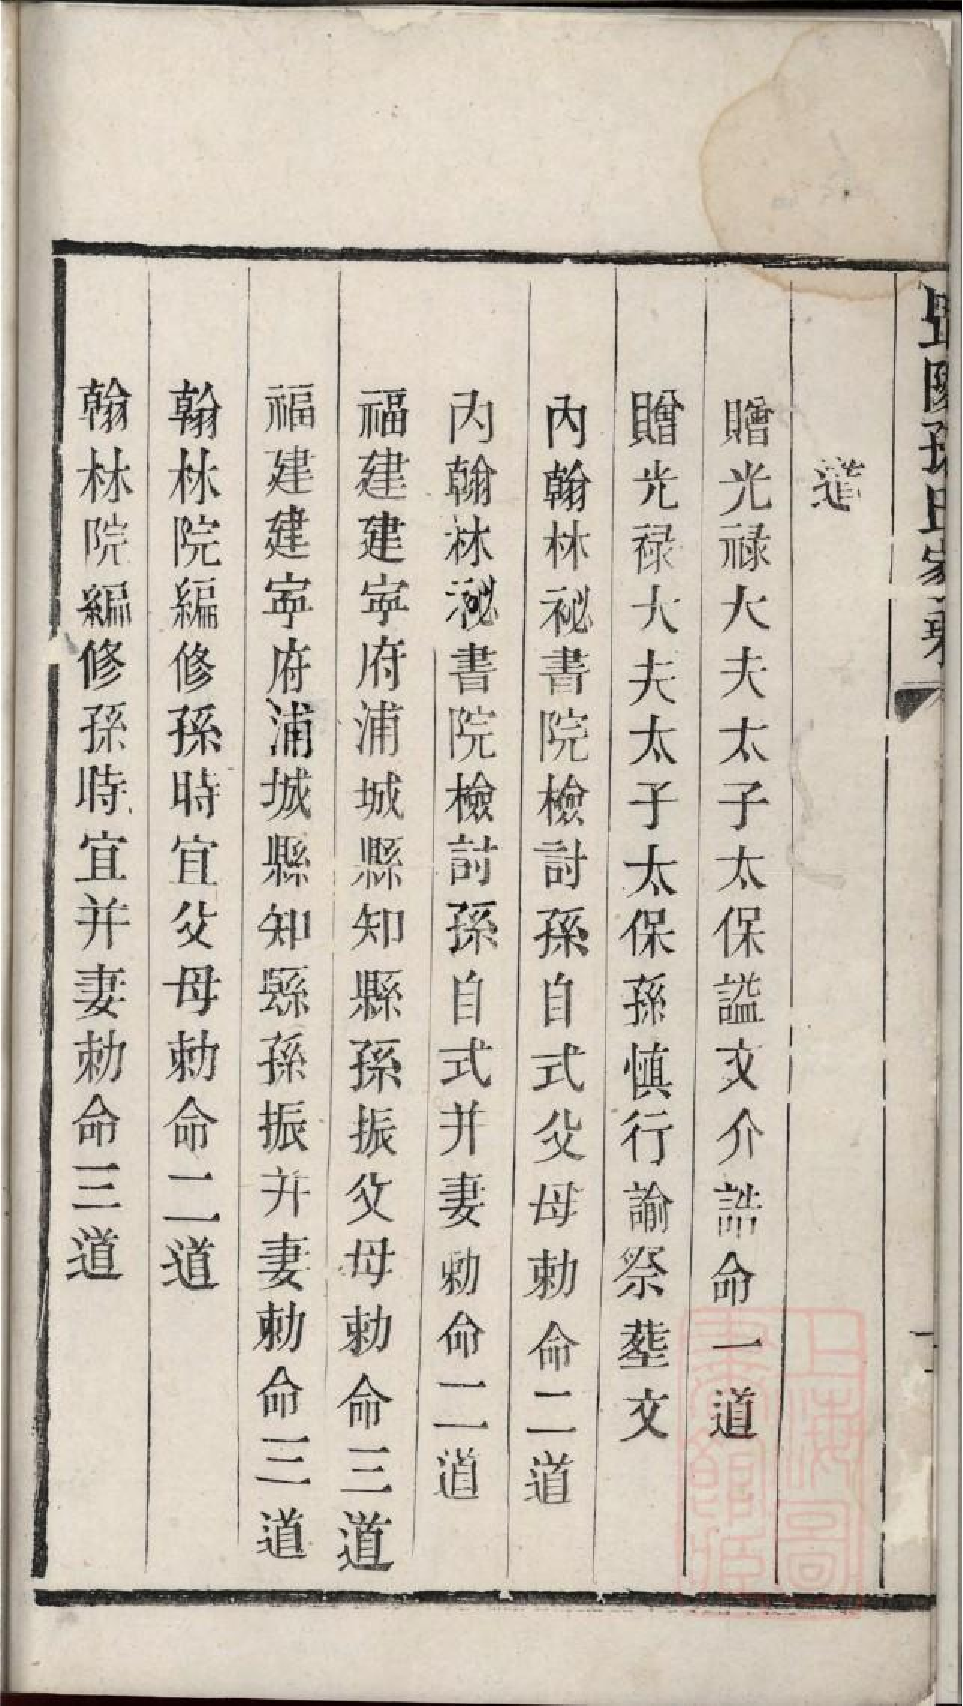 毘陵孫氏家乘
道
贈光祿大夫太子太保謚文介誥命一道
贈光祿大夫太子太保孫慎行諭祭塟文
內翰林祕書院檢討孫自式父母勅命二道
內翰林祕書院檢討孫自式并妻勅命二道
福建建寧府浦城縣知縣孫振父母勅命三道
福建建寧府浦城縣知縣孫振并妻勅命三道
翰林院編修孫時宜父母勅命二道
翰林院編修孫時宜并妻勅命三道
上海圖
書館藏